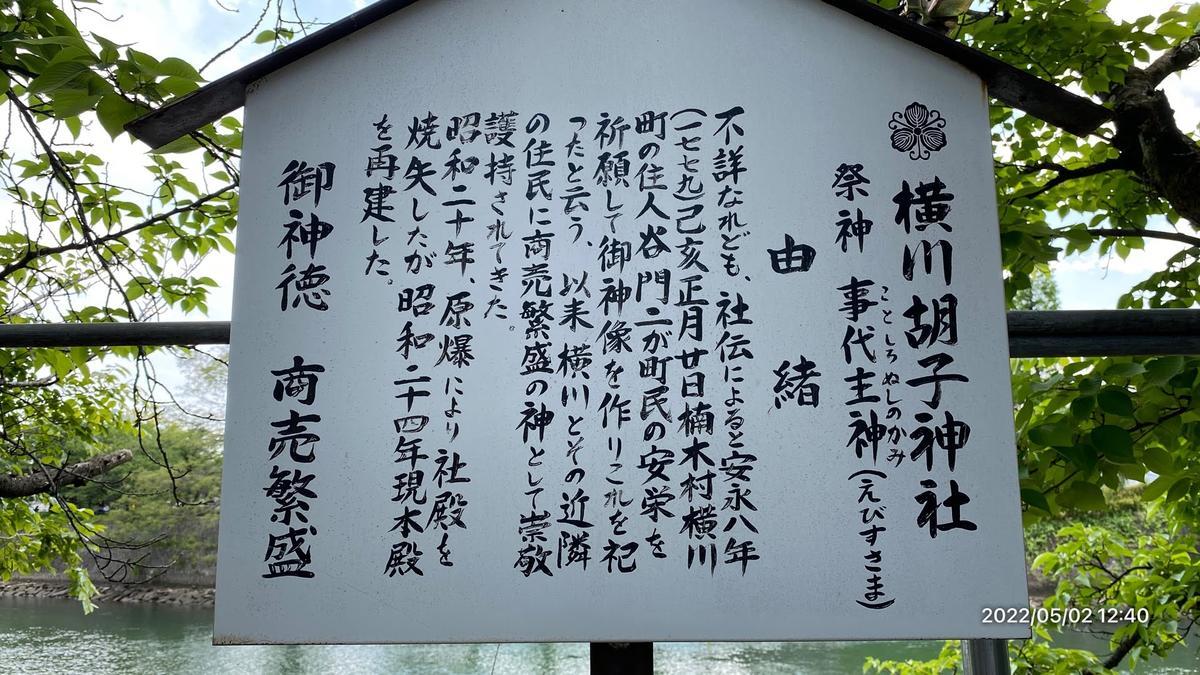 横川胡子神社
祭神 事代主神(えびすさま)
ことしろぬしのかみ
由緒
不詳なれども、社伝によると安永八年
(一七七九)己亥正月廿日楠木村横川
町の住人谷門二が町民の安栄を
祈願して御神像を作りこれを祀
ったと云う、以来横川とその近隣
の住民に商売繁盛の神として崇敬
護持されてきた。
昭和二十年、原爆により社殿を
焼失したが昭和二十四年現本殿
を再建した。
御神徳 商売繁盛
2022/05/02 12:40